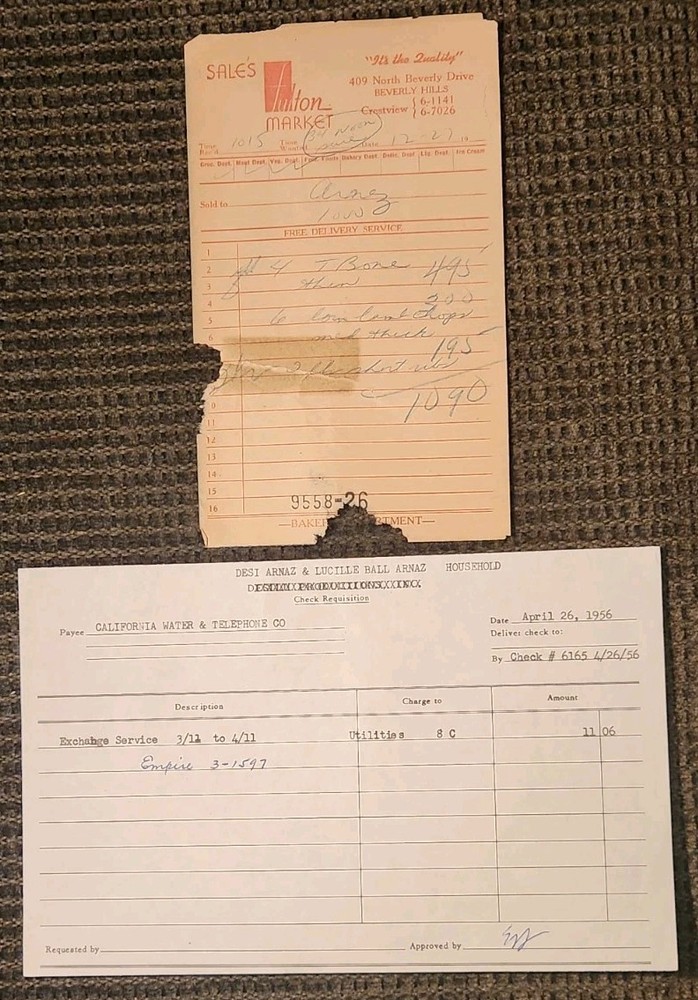 SALE'S
Fulton
MARKET
"It's the Quality"
409 North Beverly Drive
BEVERLY HILLS
Crestview { 6-1141
6-7026
Time Rec'd 1015 Time Wanted Date 12-27 19
Groc. Dept. Meat Dept. Veg. Dept. Bakery Dept. Delic. Dept Liq. Dept. Ice Cream
Sold to Arnaz
1000
FREE DELIVERY SERVICE
1
2 4 T Bone 495
3 thin
4 200
5 6 loin lamb chops
6 med thick
195
short ribs
10 1090
11
12
13
14
15
16
9558-26
DESI ARNAZ & LUCILLE BALL ARNAZ HOUSEHOLD
DESILU PRODUCTIONS, INC.
Check Requisition
Payee CALIFORNIA WATER & TELEPHONE CO
Date April 26, 1956
Deliver check to:
By Check # 6165 4/26/56
Description Charge to Amount
Exchange Service 3/11 to 4/11 Utilities 8 C 11 06
Empire 3-1597
Requested by Approved by